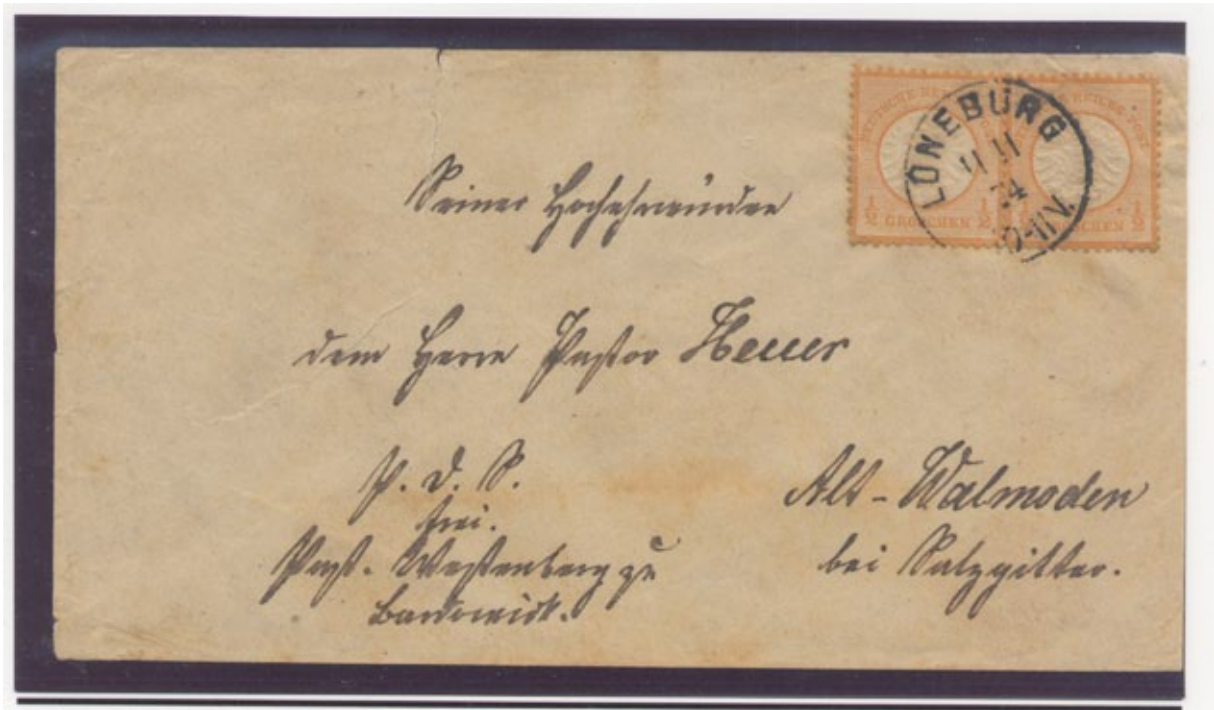 DEUTSCHE REICHS-POST
½ GROSCHEN ½
½ GROSCHEN ½
LÜNEBURG
11 11
74
10-11 V.
Seiner Hochehrwürden
dem Herrn Pastor Heuer
P. d. S.
frei.
Past. Westenberg zu
Bardowick.
Alt-Walmoden
bei Salzgitter.